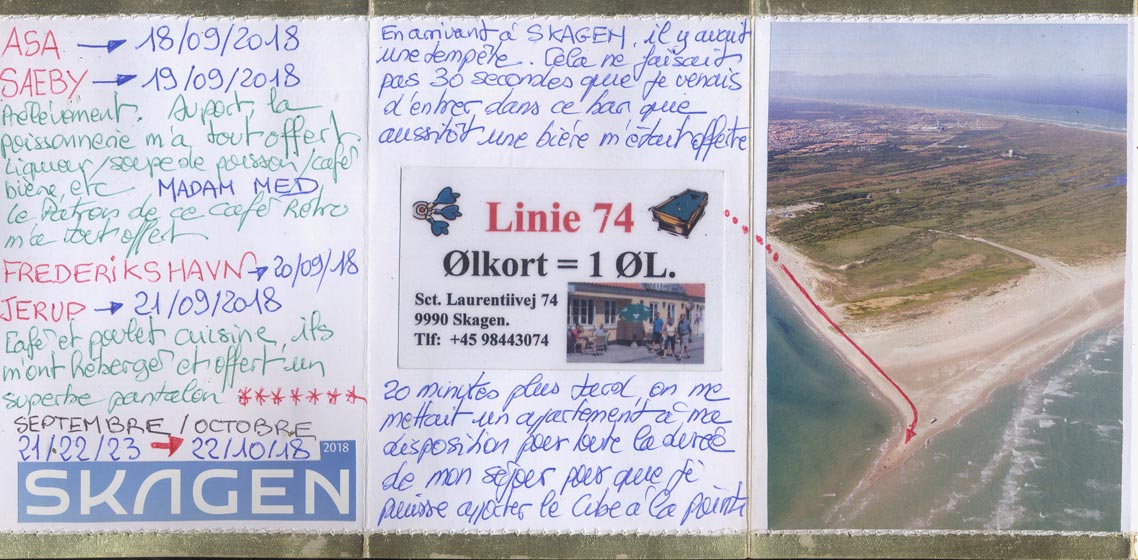 ASA → 18/09/2018
SAEBY → 19/09/2018
Prélèvement. Au port la
poissonnerie m'a tout offert.
Liqueur/soupe de poisson/café
bière, etc MADAM MED
le Patron de ce café Rétro
m'a tout offert
FREDERIKSHAVN → 20/09/18
JERUP → 21/09/2018
Café et poulet cuisine, ils
m'ont héberger et offert un
superbe pantalon *******
SEPTEMBRE / OCTOBRE
21/22/23 → 22/10/18
SKAGEN 2018
En arrivant à SKAGEN, il y avait
une tempête. Cela ne faisait
pas 30 secondes que je venais
d'entrer dans ce bar que
aussitôt une bière m'était offerte
Linie 74
Ølkort = 1 ØL.
Sct. Laurentiivej 74
9990 Skagen.
Tlf: +45 98443074
20 minutes plus tard, on me
mettait un apartement à ma
disposition pour toute la durée
de mon séjour pour que je
puisse apporter le Cube à la pointe